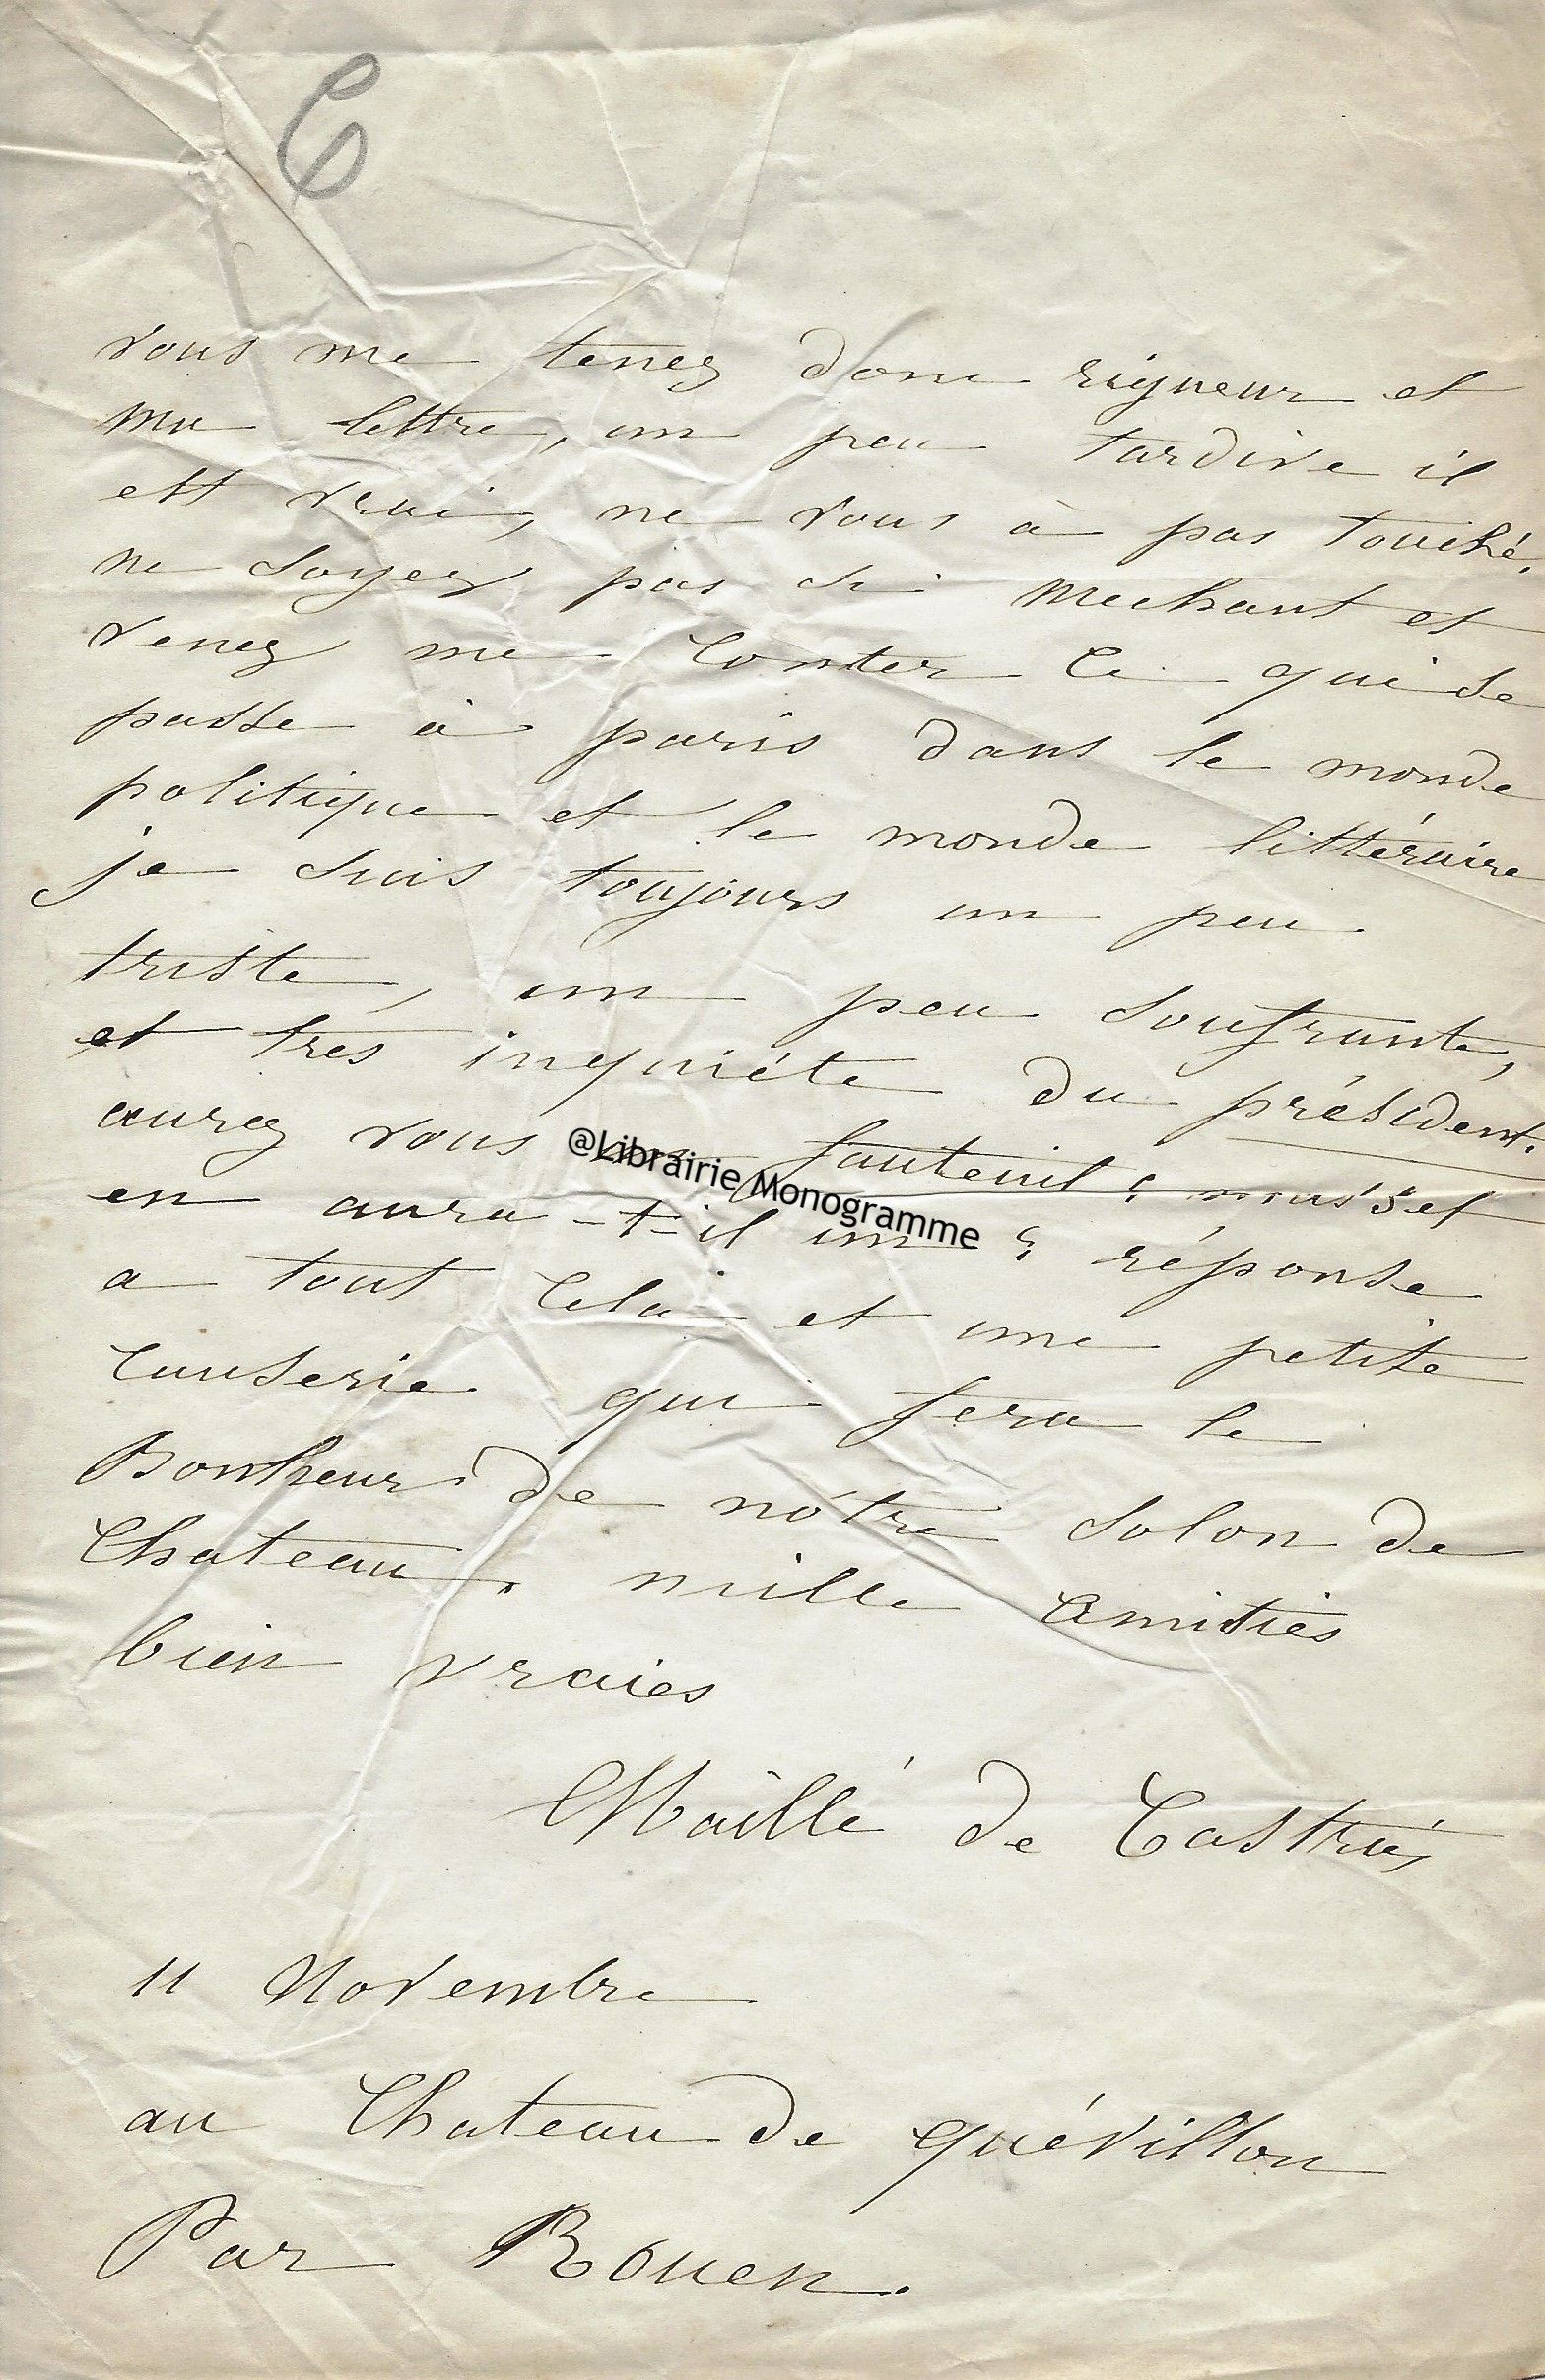 C
vous me tenez donc rigueur et
ma lettre, un peu tardive il
est vrai, ne vous à pas touché.
ne soyez pas si mechant et
venez me conter ce qui se
passe à paris dans le monde
politique et le monde littéraire
je suis toujours un peu
triste, un peu soufrante,
et très inquiéte du président.
aurez vous un fauteuil ? musset
@Librairie Monogramme
en aura-t-il un ? réponse
a tout cela et une petite
causerie qui fera le
Bonheur de nôtre salon de
Chateau. mille amitiés
bien vraies
Maillé de Castries
11 Novembre
au Chateau de quévillon
Par Rouen.